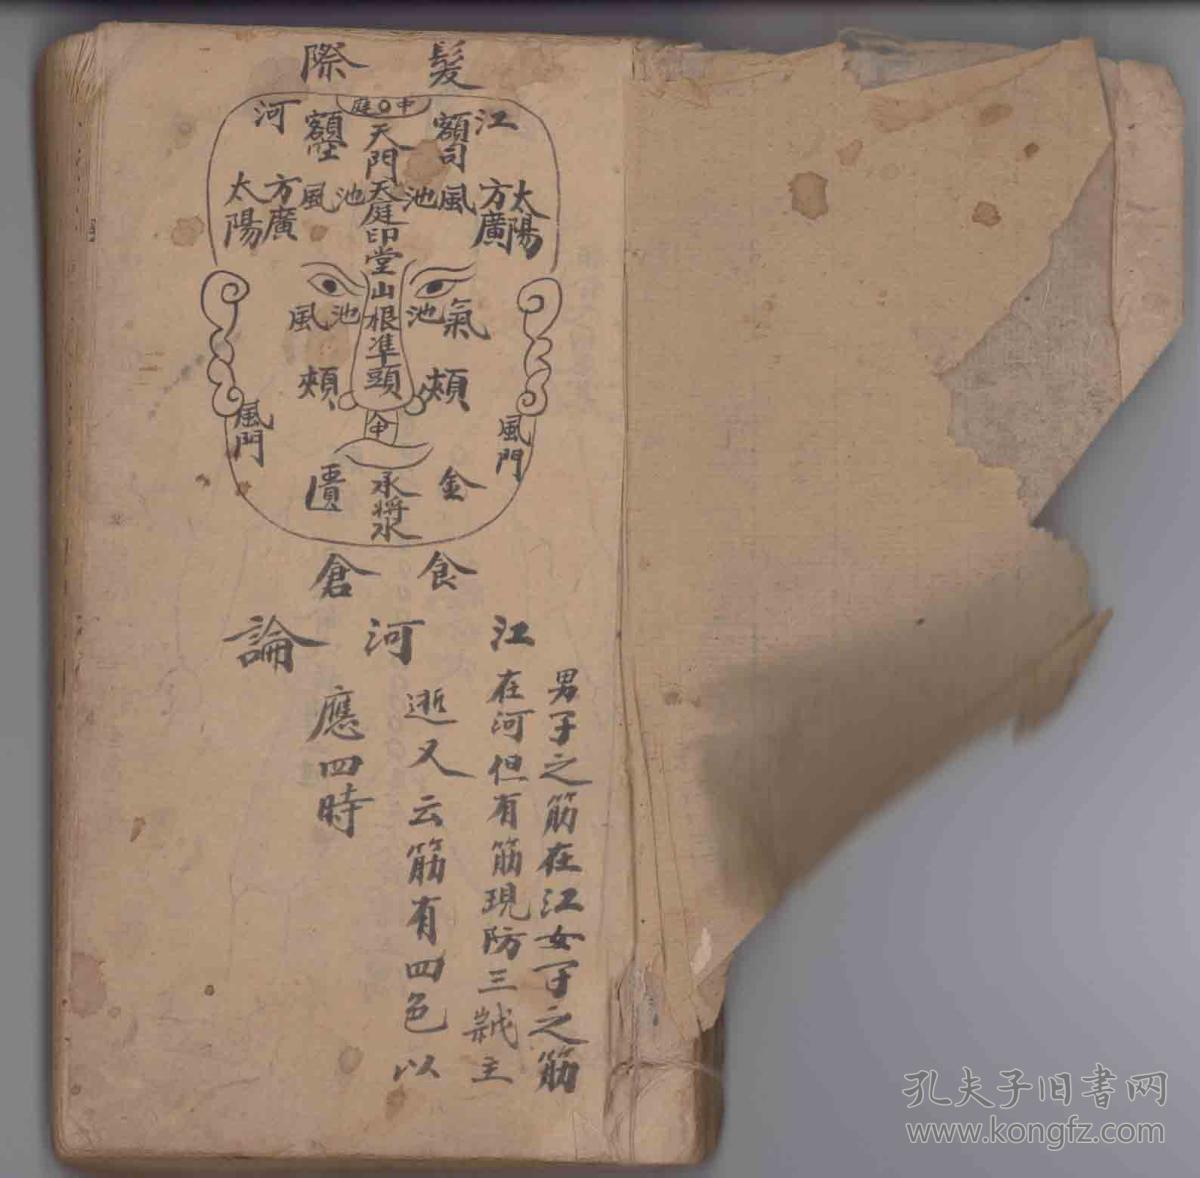 髮際
中庭
江
河
額司
額
天門天庭印堂山根準頭
太陽
方廣
風池
池風
方廣
太陽
池氣
風池
頰
頰
風門
風門
中
承將水
金匱
食倉
江河論
男子之筋在江女子之筋
在河但有筋現防三歲主
逝又云筋有四色以
應四時
孔夫子旧書网
www.kongfz.com